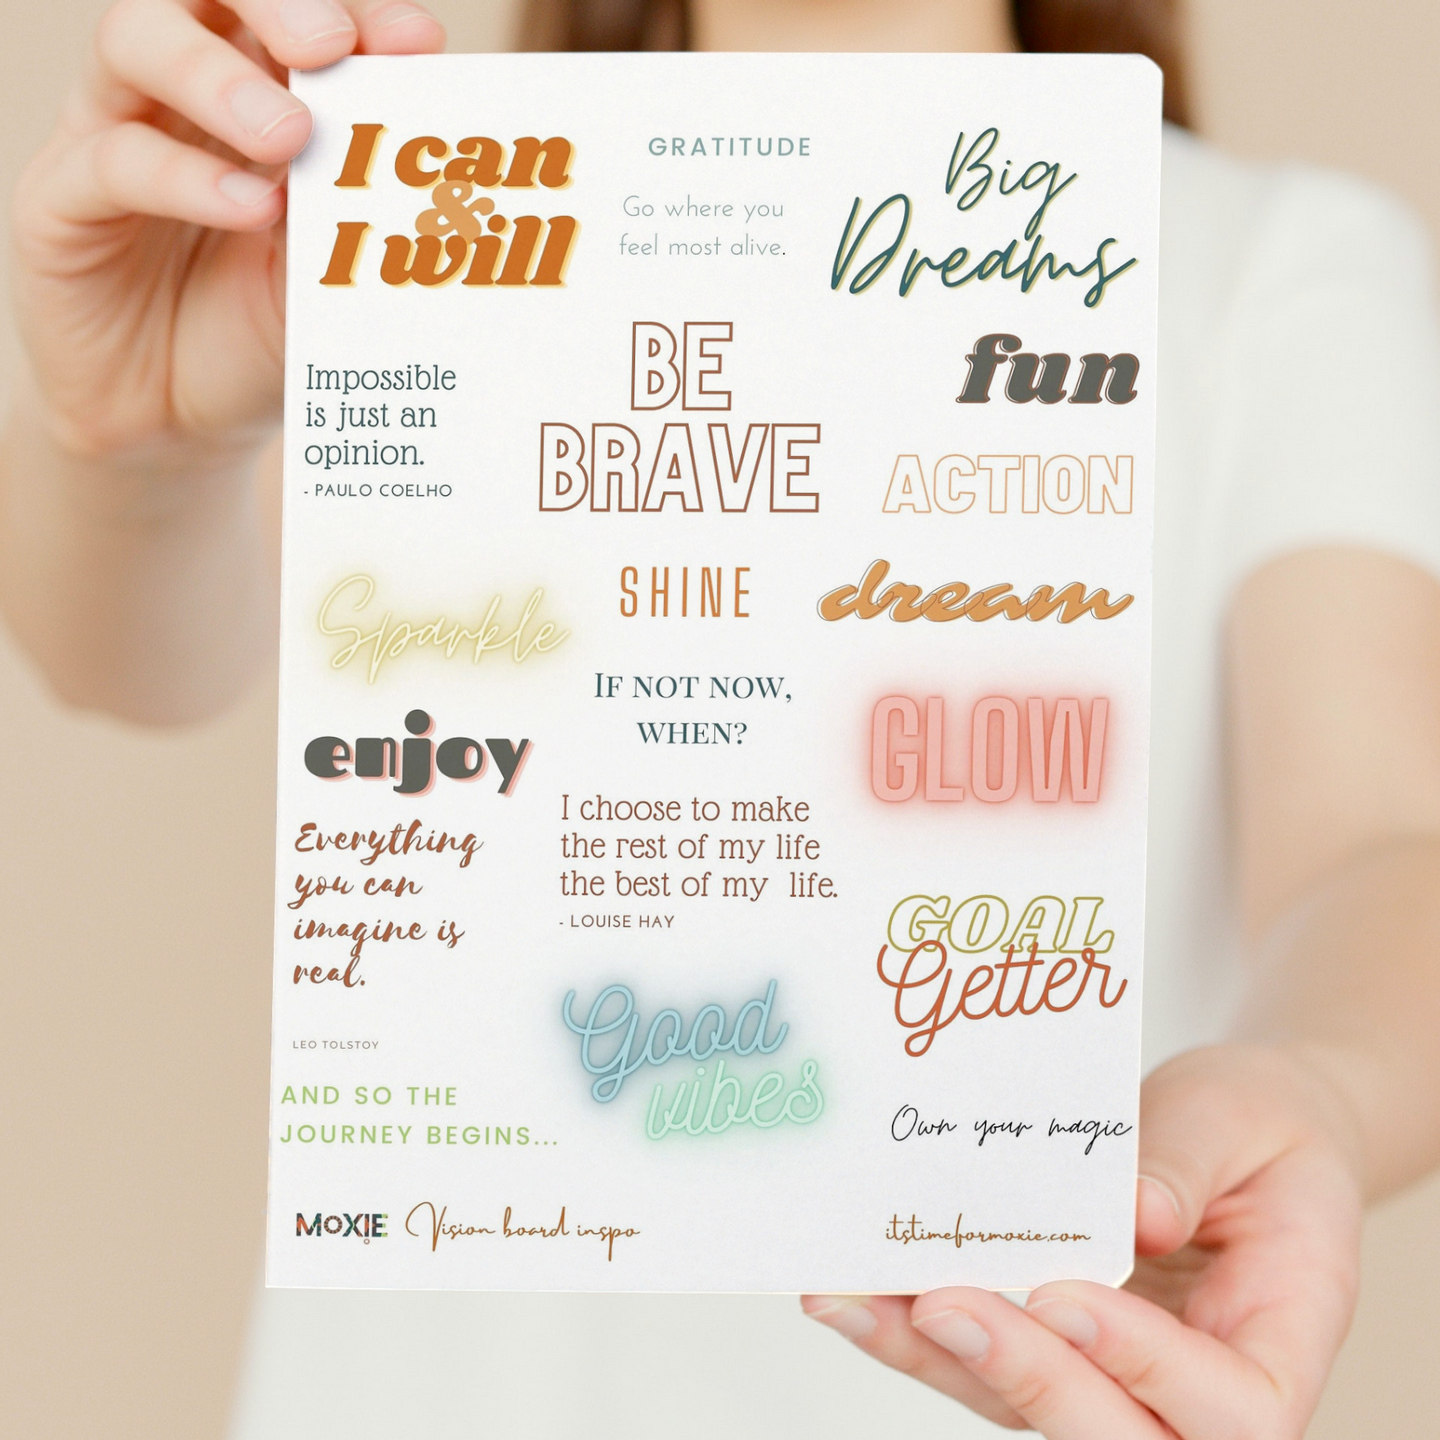 I can
&
I will
GRATITUDE
Go where you
feel most alive.
Big
Dreams
Impossible
is just an
opinion.
- PAULO COELHO
BE
BRAVE
fun
ACTION
Sparkle
SHINE
dream
IF NOT NOW,
WHEN?
GLOW
enjoy
Everything
you can
imagine is
real.
LEO TOLSTOY
I choose to make
the rest of my life
the best of my life.
- LOUISE HAY
GOAL
Getter
Good
vibes
AND SO THE
JOURNEY BEGINS...
Own your magic
MOXIE Vision board inspo
itstimeformoxie.com